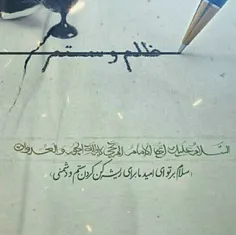 ظلم و ستم
السلام علیک ایها الامام المرتجی لازالة الجور و العدوان
(سلام بر تو ای امید ما برای ریشه کن کردن ستم و دشمنی)